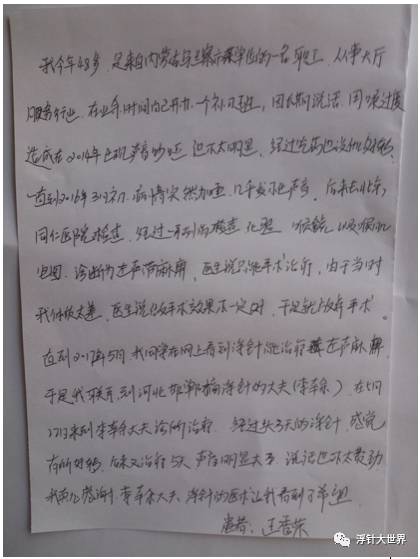 我今年48岁，是来自内蒙古乌兰察布某单位的一名职工，从事大厅
服务行业，在业余时间自己开办一个补习班，因长期说话，用嗓过度
造成在2014年出现声音沙哑，但不太明显，经过吃药也没有好转，
一直到2016年3月份病情突然加重，几乎发不出声，后来去北京
同仁医院检查，经过一系列的检查，化验，喉镜，以及喉肌
电图，诊断为左声带麻痹，医生说只能手术治疗，由于当时
我体质太差，医生说做手术效果不一定好，于是就放弃手术。
直到2017年5月我同学在网上看到浮针能治疗左声带麻痹
于是我联系到河北邯郸搞浮针的大夫（李章余），在5月
17日来到李章余大夫诊所治疗，经过头3天的浮针，感觉
有所好转，后来又治疗5天，声音明显大了，说话也不太费劲
我衷心感谢，李章余大夫，浮针的医术让我看到了希望
患者：王
浮针大世界